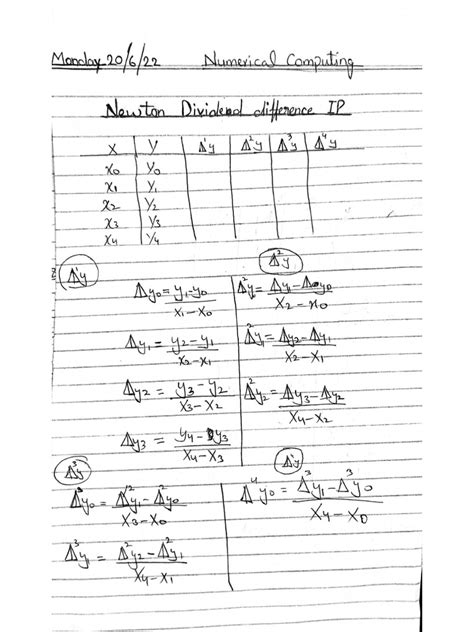 Monday 20/6/22 Numerical Computing
Newton Dividend difference IP
X Y Δ¹y Δ²y Δ³y Δ⁴y
x₀ y₀
x₁ y₁
x₂ y₂
x₃ y₃
x₄ y₄
Δ¹y
Δy₀ = y₁-y₀ / x₁-x₀
Δy₁ = y₂-y₁ / x₂-x₁
Δy₂ = y₃-y₂ / x₃-x₂
Δy₃ = y₄-y₃ / x₄-x₃
Δ²y
Δ²y₀ = Δy₁-Δy₀ / x₂-x₀
Δ²y₁ = Δy₂-Δy₁ / x₂-x₁
Δ²y₂ = Δy₃-Δy₂ / x₄-x₂
Δ³y
Δ³y₀ = Δ²y₁-Δ²y₀ / x₃-x₀
Δ³y₁ = Δ²y₂-Δ²y₁ / x₄-x₁
Δ⁴y
Δ⁴y₀ = Δ³y₁-Δ³y₀ / x₄-x₀